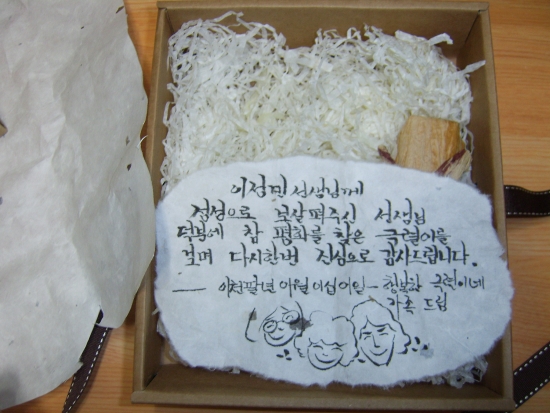 이정민 선생님께
정성으로 보살펴주신 선생님
덕분에 참 평화를 찾은 극렬이를
보며 다시한번 진심으로 감사드립니다.
이천팔년 이월 이십 이일 -
가족 드림